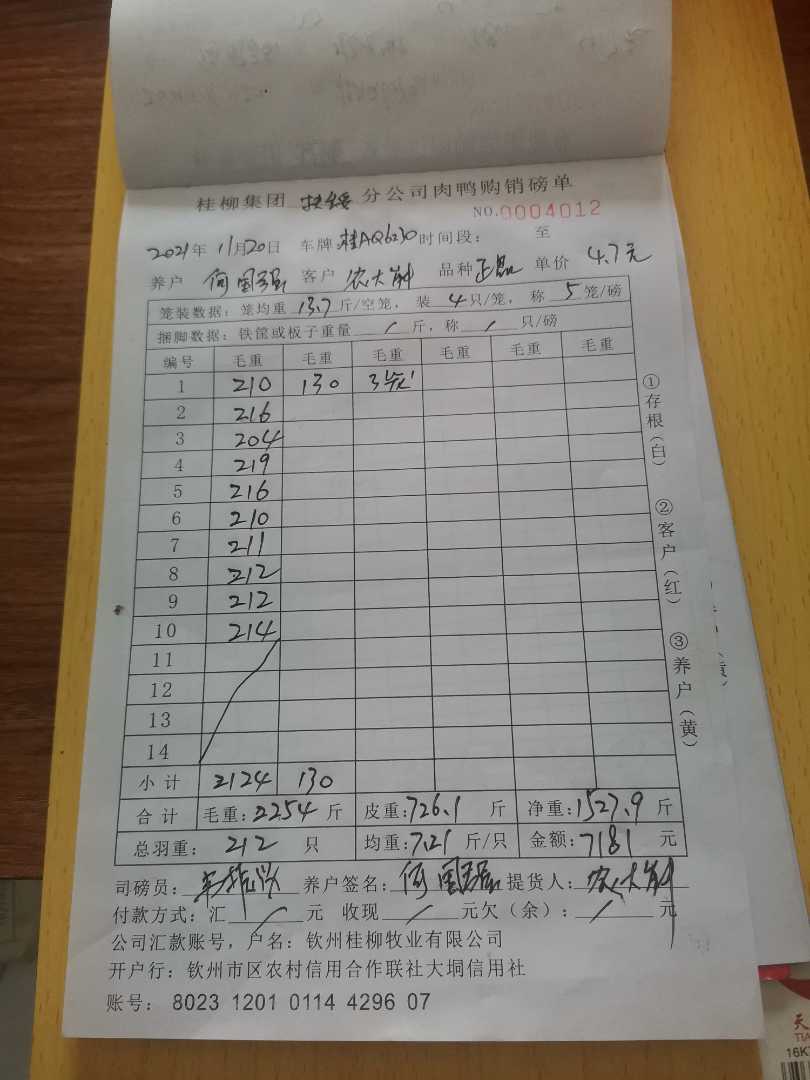 桂柳集团 扶绥 分公司肉鸭购销磅单
NO.0004012
2021年 11月20日 车牌:桂AQ6230 时间段: 至
养户 何国强 客户 农大 品种 正品 单价 4.7元
笼装数据:笼均重 13.7 斤/空笼, 装 4 只/笼, 称 5 笼/磅
捆脚数据:铁筐或板子重量 / 斤,称 / 只/磅
编号 毛重 毛重 毛重 毛重 毛重 毛重
1 210 130 3
2 216
3 204
4 219
5 216
6 210
7 211
8 212
9 212
10 214
11
12
13
14
小计 2124 130
合计 毛重:2254 斤 皮重:726.1 斤 净重:1527.9 斤
总羽重: 212 只 均重:7.21 斤/只 金额:7181 元
司磅员: 养户签名: 何国强 提货人: 农大
付款方式:汇 / 元 收现 / 元欠(余): / 元
公司汇款账号,户名:钦州桂柳牧业有限公司
开户行:钦州市区农村信用合作联社大垌信用社
账号: 8023 1201 0114 4296 07
①存根(白)
②客户(红)
③养户(黄)
天
TIA
16K